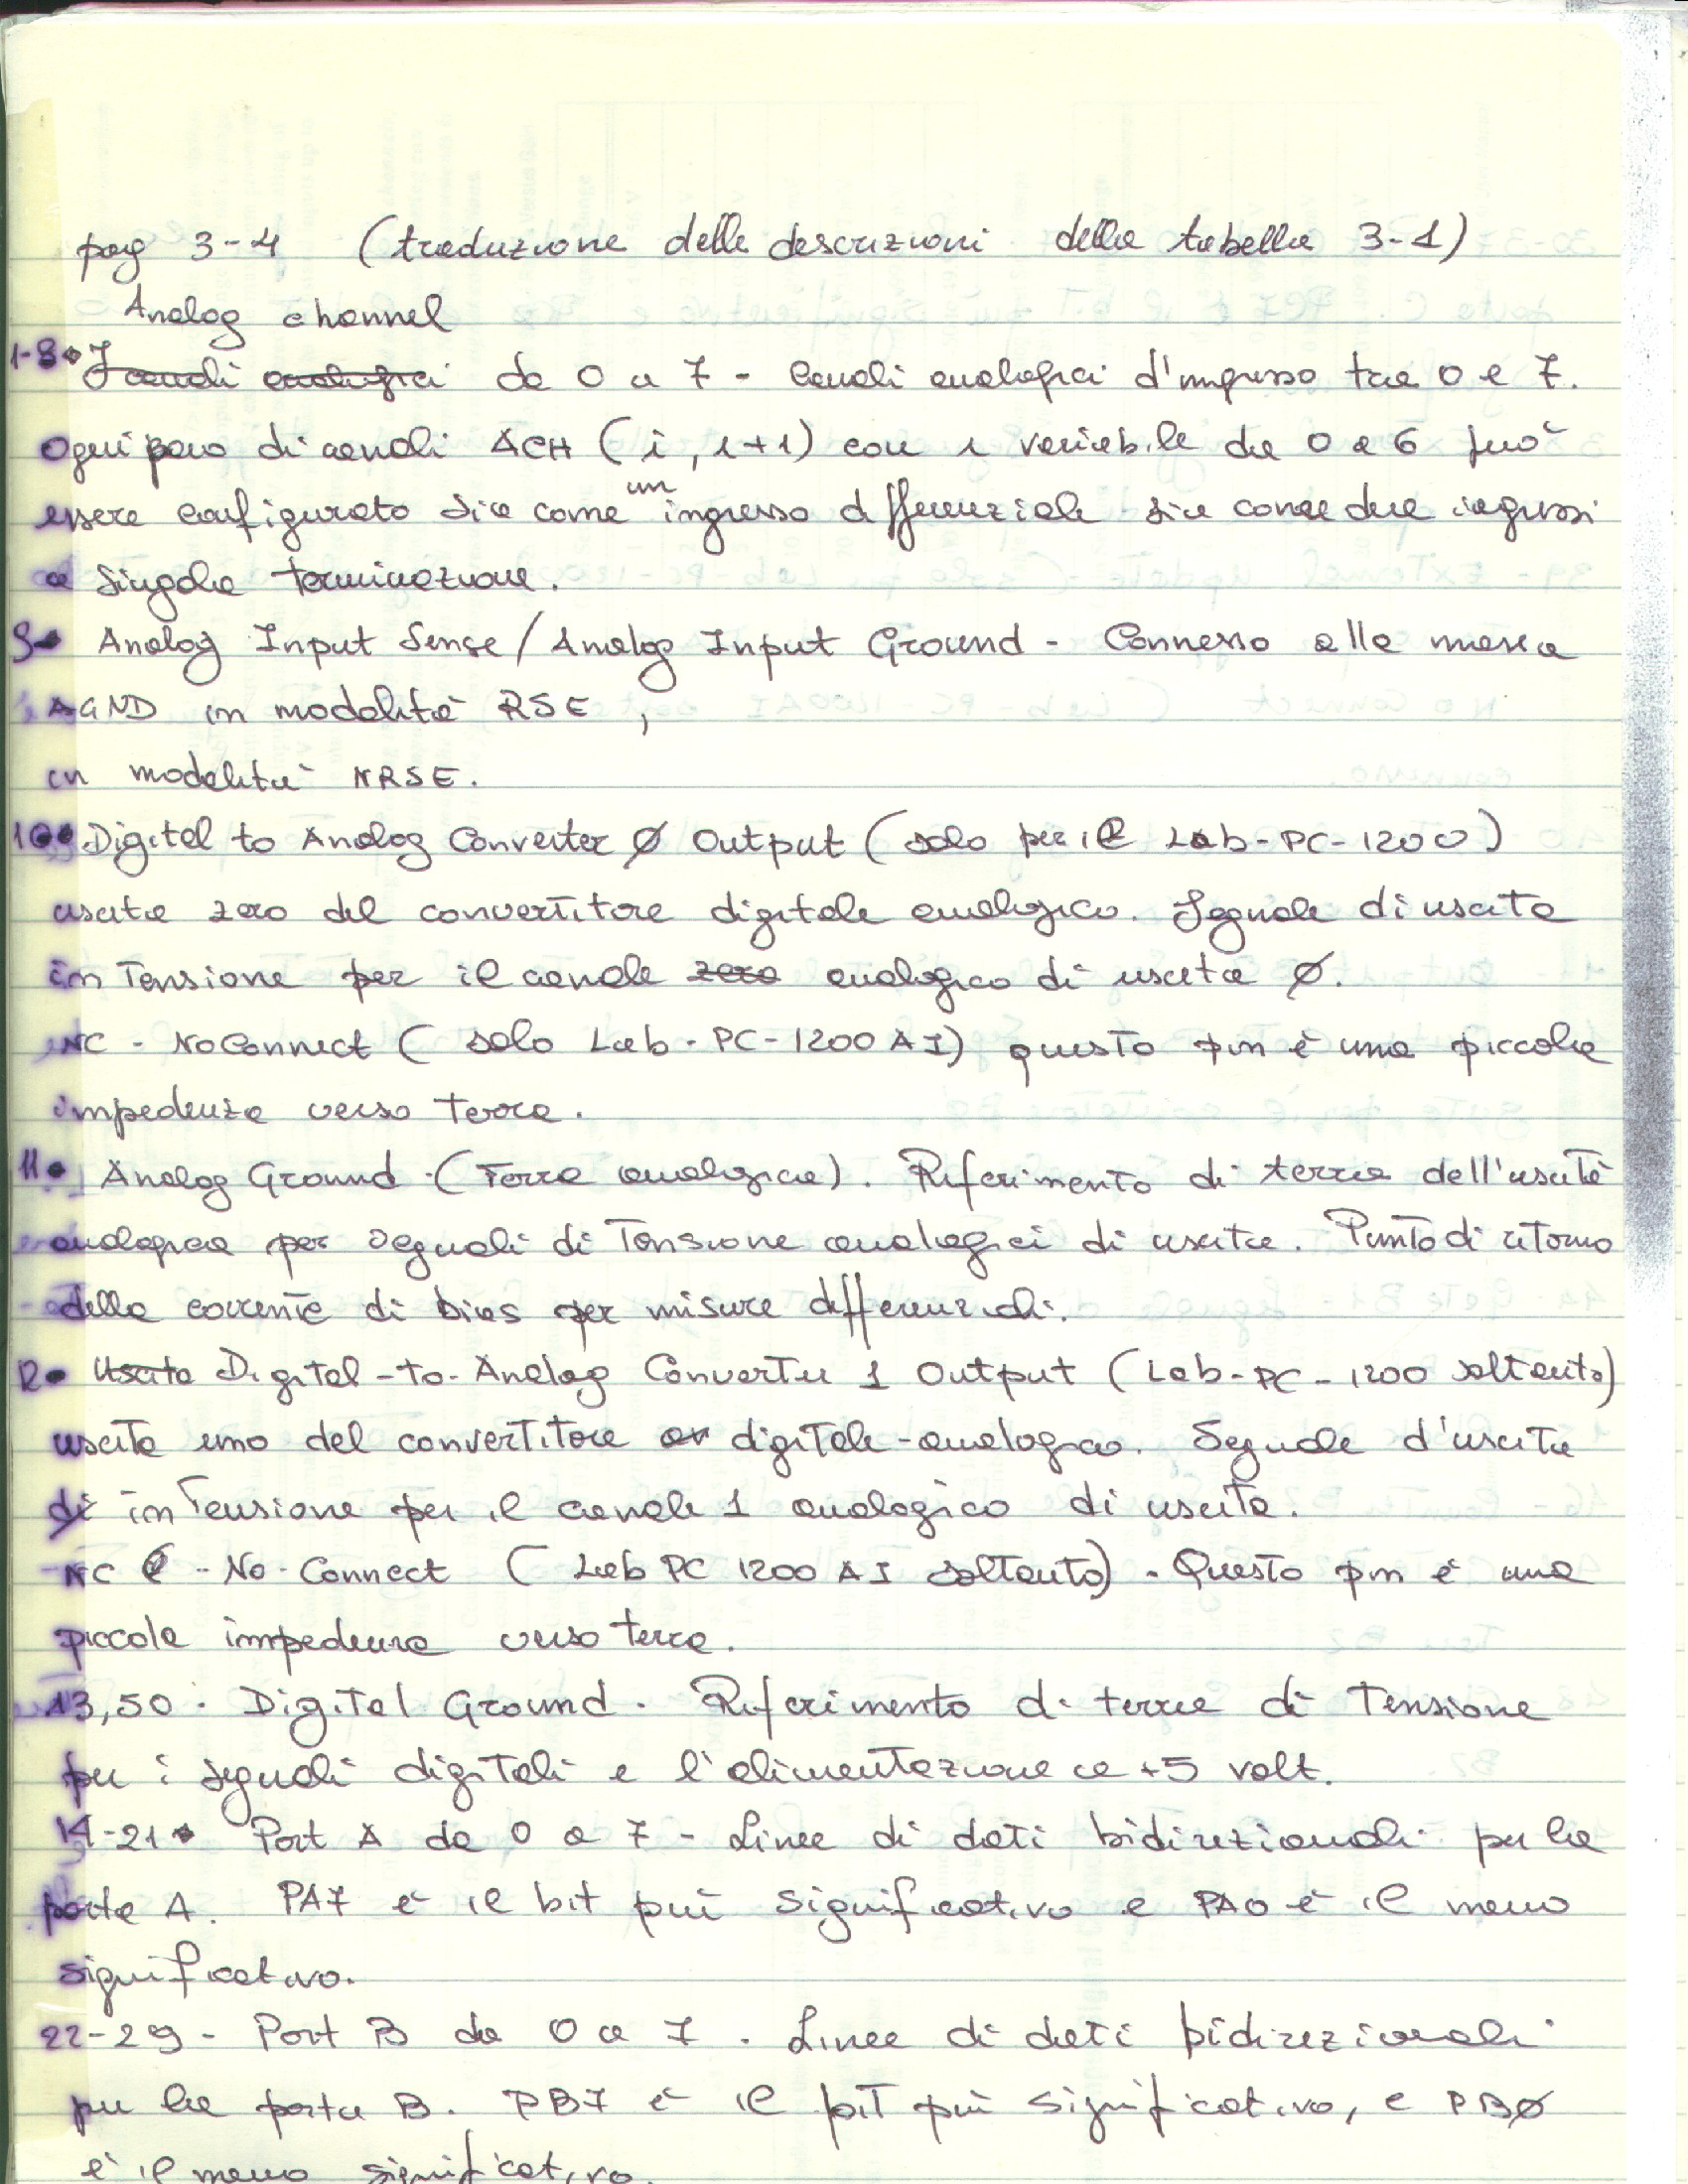 pag 3-4 (traduzione delle descrizioni della tabella 3-1)
Analog channel
1-8• I canali analogici da 0 a 7 - Canali analogici d'ingresso tra 0 e 7.
Ogni paio di canali ACH (i, i+1) con i variabile da 0 a 6 può
essere configurato sia come un ingresso differenziale sia come due ingressi
a singola terminazione.
9• Analog Input Sense/Analog Input Ground - Connesso alla massa
AGND in modalità RSE,
in modalità NRSE.
10• Digital to Analog Converter Ø Output (solo per il Lab-PC-1200)
uscita zero del convertitore digitale analogico. Segnale di uscita
in Tensione per il canale zero analogico di uscita Ø.
NC - NoConnect (solo Lab-PC-1200AI) questo pin è una piccola
impedenza verso Terra.
11• Analog Ground (Terra analogica). Riferimento di terra dell'uscita
analogica per segnali di Tensione analogici di uscita. Punto di ritorno
della corrente di bias per misure differenziali.
12• Uscita Digital-to-Analog Converter 1 Output (Lab-PC-1200 soltanto)
uscita uno del convertitore digitale-analogico. Segnale d'uscita
di in Tensione per il canale 1 analogico di uscita.
NC - No-Connect (Lab PC 1200 AI soltanto). Questo pin è una
piccola impedenza verso terra.
13,50 - Digital Ground. Riferimento di terra di Tensione
per i segnali digitali e l'alimentazione a +5 volt.
14-21• Port A da 0 a 7 - Linee di dati bidirezionali per la
porta A. PA7 è il bit più significativo e PA0 è il meno
significativo.
22-29 - Port B da 0 a 7. Linee di dati bidirezionali
per la porta B. PB7 è il bit più significativo, e PBØ
è il meno significativo.